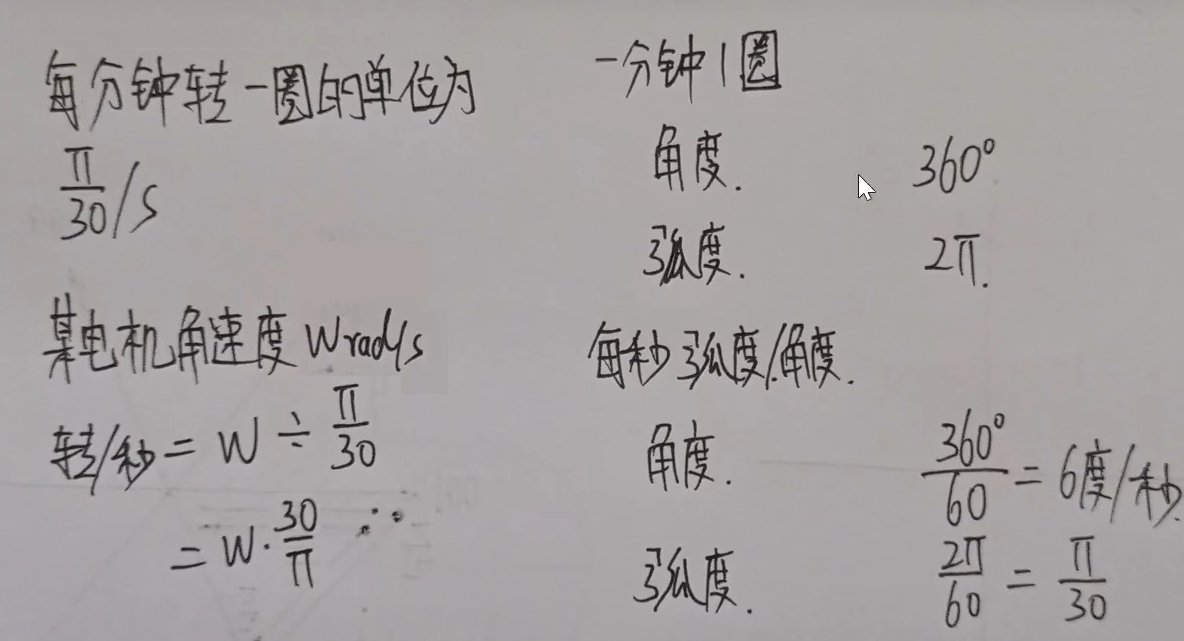 每分钟转一圈的单位为
π/30 /s
某电机角速度 W rad/s
转/秒 = W ÷ π/30
= W · 30/π
一分钟1圈
角度. 360°
弧度. 2π.
每秒弧度/角度.
角度. 360°/60 = 6度/秒.
弧度. 2π/60 = π/30